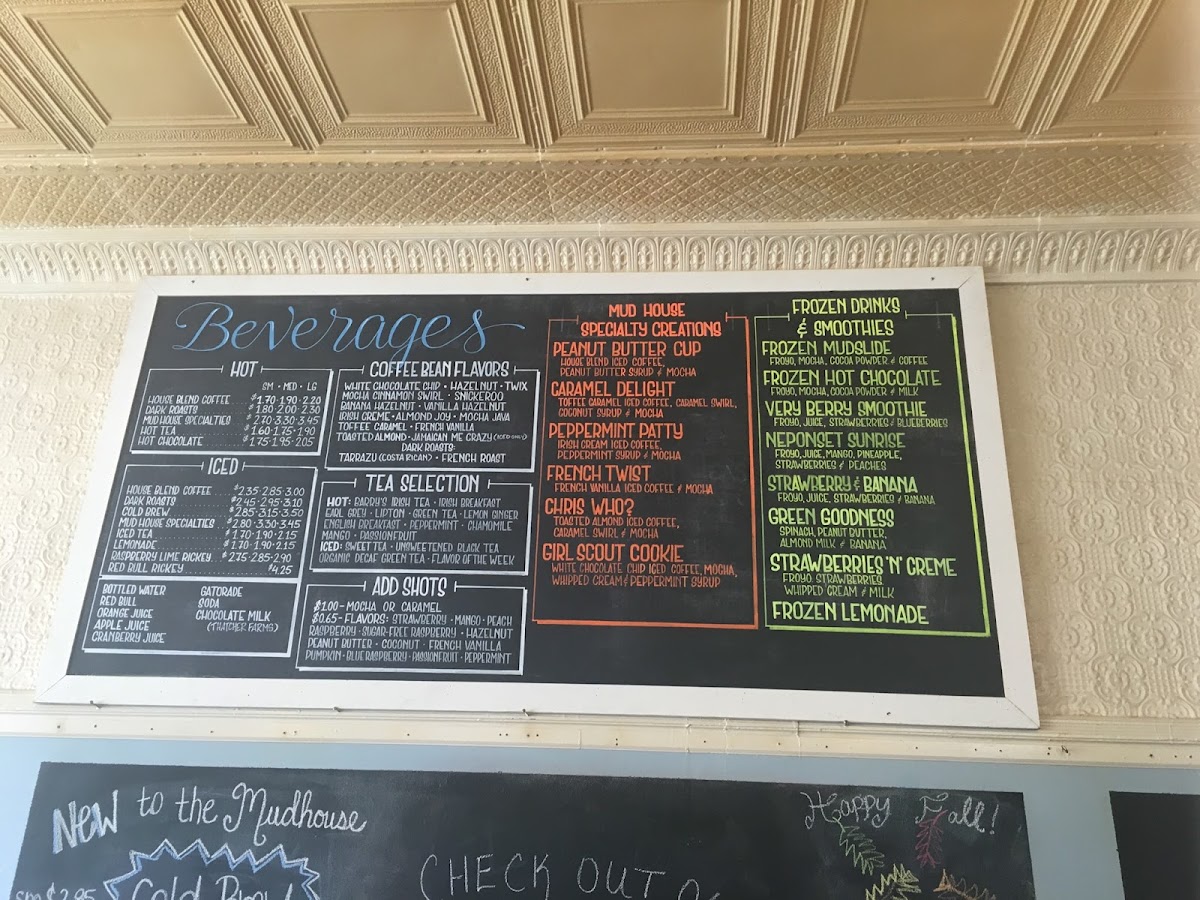 Beverages
HOT
SM • MED • LG
HOUSE BLEND COFFEE $1.70•1.90•2.20
DARK ROASTS $1.80•2.00•2.30
MUD HOUSE SPECIALTIES $2.70•3.30•3.45
HOT TEA $1.60•1.75•1.90
HOT CHOCOLATE $1.75•1.95•2.05
ICED
HOUSE BLEND COFFEE $2.35•2.85•3.00
DARK ROASTS $2.45•2.95•3.10
COLD BREW $2.85•3.15•3.50
MUD HOUSE SPECIALTIES $2.80•3.30•3.45
ICED TEA $1.70•1.90•2.15
LEMONADE $1.70•1.90•2.15
RASPBERRY LIME RICKEY $2.75•2.85•2.90
RED BULL RICKEY $4.25
BOTTLED WATER
RED BULL
ORANGE JUICE
APPLE JUICE
CRANBERRY JUICE
GATORADE
SODA
CHOCOLATE MILK
(THATCHER FARMS)
COFFEE BEAN FLAVORS
WHITE CHOCOLATE CHIP • HAZELNUT • TWIX
MOCHA CINNAMON SWIRL • SNICKEROO
BANANA HAZELNUT • VANILLA HAZELNUT
IRISH CREME • ALMOND JOY • MOCHA JAVA
TOFFEE CARAMEL • FRENCH VANILLA
TOASTED ALMOND • JAMAICAN ME CRAZY (ICED ONLY)
DARK ROASTS:
TARRAZU (COSTA RICAN) • FRENCH ROAST
TEA SELECTION
HOT: BARRY'S IRISH TEA • IRISH BREAKFAST
EARL GREY • LIPTON • GREEN TEA • LEMON GINGER
ENGLISH BREAKFAST • PEPPERMINT • CHAMOMILE
MANGO • PASSIONFRUIT
ICED: SWEET TEA • UNSWEETENED BLACK TEA
ORGANIC DECAF GREEN TEA • FLAVOR OF THE WEEK
ADD SHOTS
$1.00 - MOCHA OR CARAMEL
$0.65 - FLAVORS: STRAWBERRY • MANGO • PEACH
RASPBERRY • SUGAR-FREE RASPBERRY • HAZELNUT
PEANUT BUTTER • COCONUT • FRENCH VANILLA
PUMPKIN • BLUE RASPBERRY • PASSIONFRUIT • PEPPERMINT
MUD HOUSE
SPECIALTY CREATIONS
PEANUT BUTTER CUP
HOUSE BLEND ICED COFFEE,
PEANUT BUTTER SYRUP & MOCHA
CARAMEL DELIGHT
TOFFEE CARAMEL ICED COFFEE, CARAMEL SWIRL,
COCONUT SYRUP & MOCHA
PEPPERMINT PATTY
IRISH CREAM ICED COFFEE,
PEPPERMINT SYRUP & MOCHA
FRENCH TWIST
FRENCH VANILLA ICED COFFEE & MOCHA
CHRIS WHO?
TOASTED ALMOND ICED COFFEE,
CARAMEL SWIRL & MOCHA
GIRL SCOUT COOKIE
WHITE CHOCOLATE CHIP ICED COFFEE, MOCHA,
WHIPPED CREAM & PEPPERMINT SYRUP
FROZEN DRINKS
& SMOOTHIES
FROZEN MUDSLIDE
FROYO, MOCHA, COCOA POWDER & COFFEE
FROZEN HOT CHOCOLATE
FROYO, MOCHA, COCOA POWDER & MILK
VERY BERRY SMOOTHIE
FROYO, JUICE, STRAWBERRIES & BLUEBERRIES
NEPONSET SUNRISE
FROYO, JUICE, MANGO, PINEAPPLE,
STRAWBERRIES & PEACHES
STRAWBERRY & BANANA
FROYO, JUICE, STRAWBERRIES & BANANA
GREEN GOODNESS
SPINACH, PEANUT BUTTER,
ALMOND MILK & BANANA
STRAWBERRIES 'N' CREME
FROYO, STRAWBERRIES
WHIPPED CREAM & MILK
FROZEN LEMONADE
NEW to the Mudhouse
Cold Brew!
sm $2.85
CHECK OUT
Happy Fall!